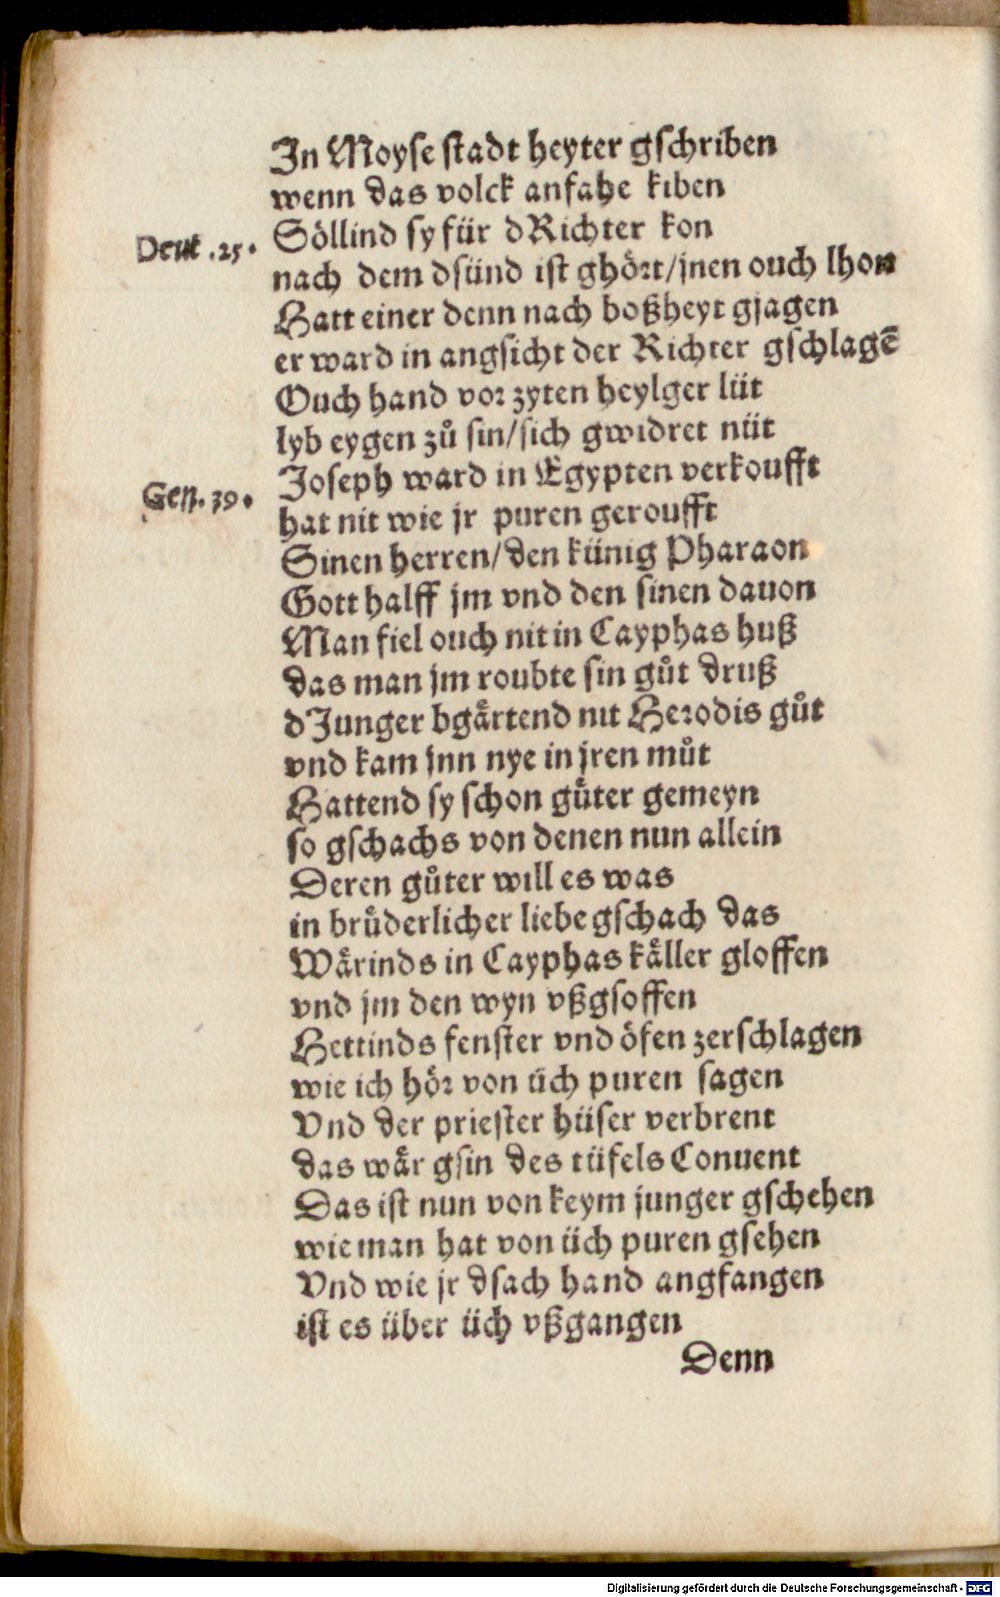 In Moyse stadt heyter gschriben
wenn das volck anfahe kiben
Deut .25. Söllind sy für dRichter kon
nach dem dsünd ist ghört/jnen ouch lhon
Hatt einer denn nach boßheyt gjagen
er ward in angsicht der Richter gschlagẽ
Ouch hand vor zyten heylger lüt
lyb eygen zů sin/sich gwidret nüt
Gen. 39. Joseph ward in Egypten verkoufft
hat nit wie jr puren geroufft
Sinen herren/den künig Pharaon
Gott halff jm vnd den sinen dauon
Man fiel ouch nit in Cayphas huß
das man jm roubte sin gůt druß
dJunger bgårtend nit Herodis gůt
vnd kam jnn nye in jren můt
Hattend sy schon gůter gemeyn
so gschachs von denen nun allein
Deren gůter will es was
in brůderlicher liebe gschach das
Wårinds in Cayphas kåller gloffen
vnd jm den wyn vßgsoffen
Hettinds fenster vnd öfen zerschlagen
wie ich hör von üch puren sagen
Vnd der priester hüser verbrent
das wår gsin des tüfels Conuent
Das ist nun von keym junger gschehen
wie man hat von üch puren gsehen
Vnd wie jr dsach hand angfangen
ist es über üch vßgangen
Denn
Digitalisierung gefördert durch die Deutsche Forschungsgemeinschaft - DFG